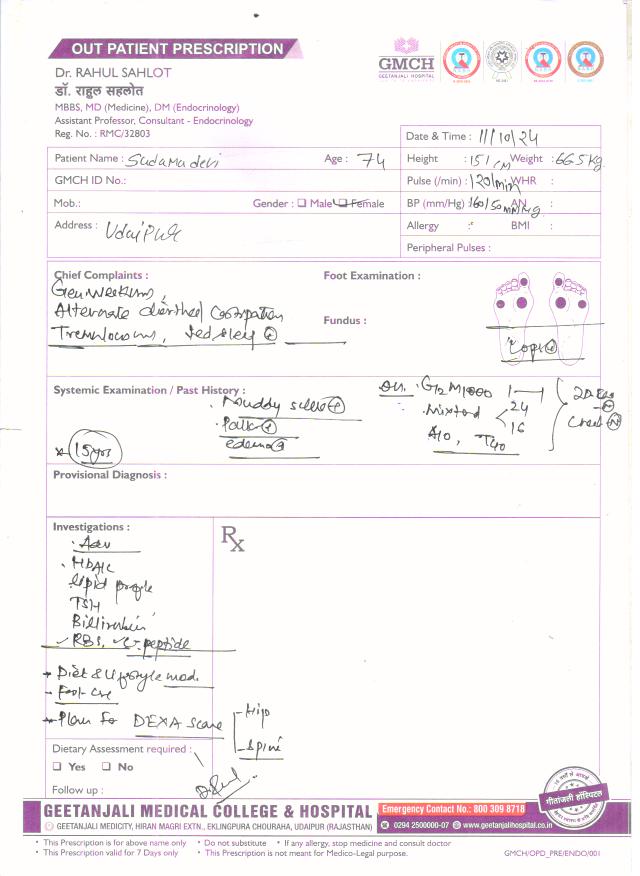 OUT PATIENT PRESCRIPTION
GMCH
GEETANJALI HOSPITAL
Dr. RAHUL SAHLOT
डॉ. राहुल सहलोत
MBBS, MD (Medicine), DM (Endocrinology)
Assistant Professor, Consultant - Endocrinology
Reg. No. : RMC/32803
Date & Time : 11/10/24
Patient Name : Sudama devi Age : 74
Height : 151 CM Weight : 66.5 Kg.
GMCH ID No.:
Pulse (/min) : 120/min WHR :
Mob.: Gender : Male Female
BP (mm/Hg) : 160/50 mm/Hg. AN :
Address : Udaipur
Allergy : BMI :
Peripheral Pulses :
Chief Complaints : Foot Examination :
Gen weakness,
Alternate diarrhea, Constipation
Fundus :
Systemic Examination / Past History :
Muddy sclera +
Pallor +
edema +
G2 M1000 1
Mixtard 24
16
A10, T40
15 yrs
Provisional Diagnosis :
Investigations : Rx
HbA1c
lipid profile
TSH
Billirubin
RBS, C-peptide
Diet & Lifestyle mod.
Foot care
Plan for DEXA scan
Hip
Spine
Dietary Assessment required :
Yes No
Follow up :
गीतांजली हॉस्पिटल
GEETANJALI MEDICAL COLLEGE & HOSPITAL
Emergency Contact No.: 800 309 8718
GEETANJALI MEDICITY, HIRAN MAGRI EXTN., EKLINGPURA CHOURAHA, UDAIPUR (RAJASTHAN)
0294 2500000-07 www.geetanjalihospital.co.in
• This Prescription is for above name only • Do not substitute • If any allergy, stop medicine and consult doctor
• This Prescription valid for 7 Days only • This Prescription is not meant for Medico-Legal purpose.
GMCH/OPD_PRE/ENDO/001